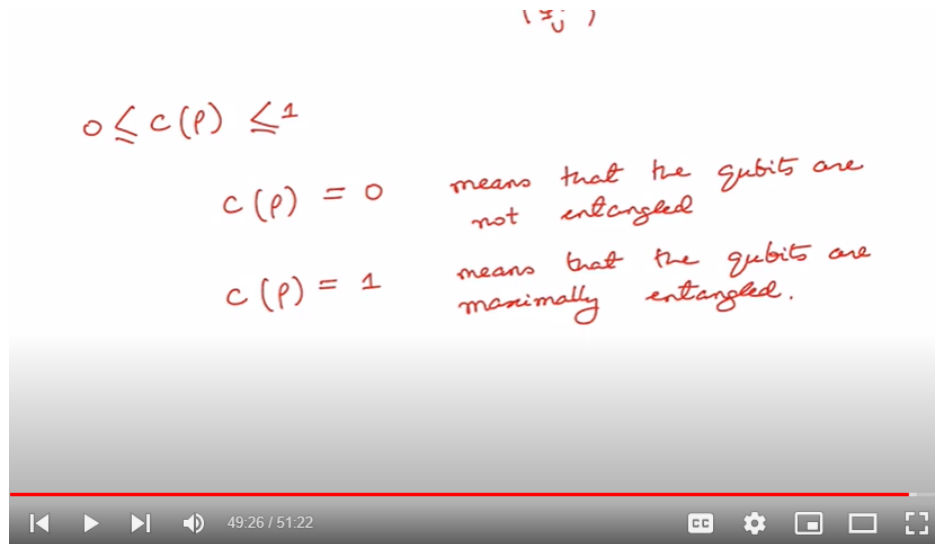 0 ≤ c(ρ) ≤ 1
c(ρ) = 0 means that the qubits are
not entangled
c(ρ) = 1 means that the qubits are
maximally entangled.
49:26 / 51:22
CC